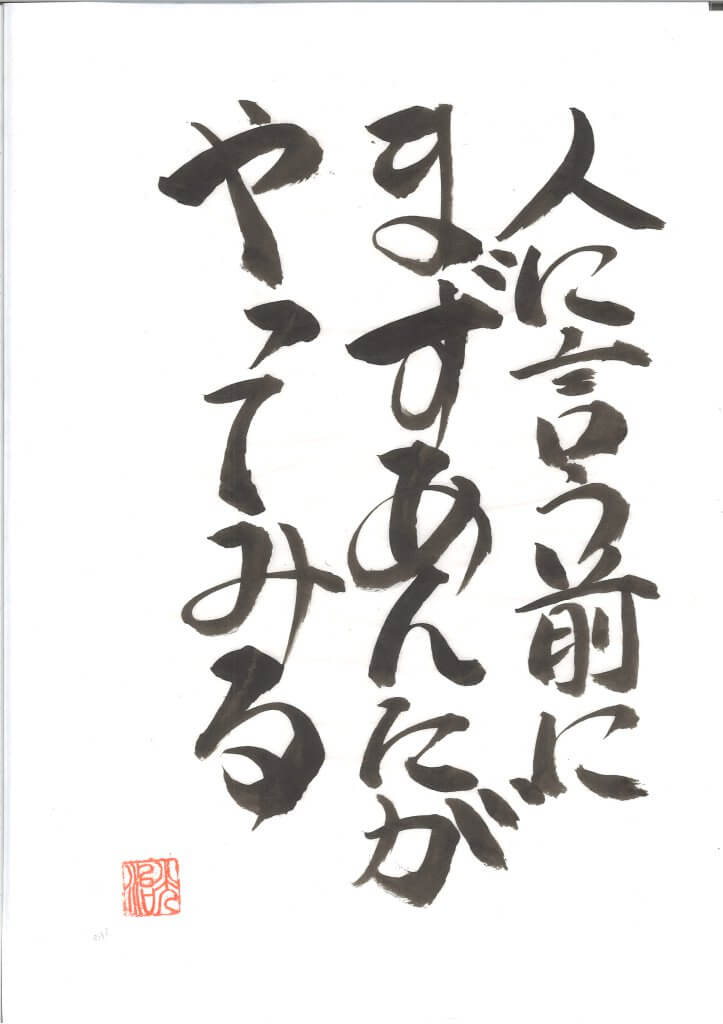 人に言う前に
まずあんにが
やってみる